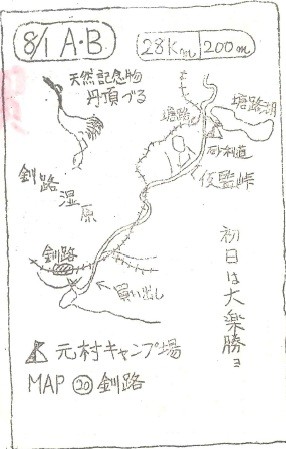 8/1 A・B
28Km 200m
天然記念物
丹頂づる
塘路
塘路湖
砂利道
釧路
湿
原
釧路
買い出し
初日は大楽勝ョ
元村キャンプ場
MAP ⑳ 釧路